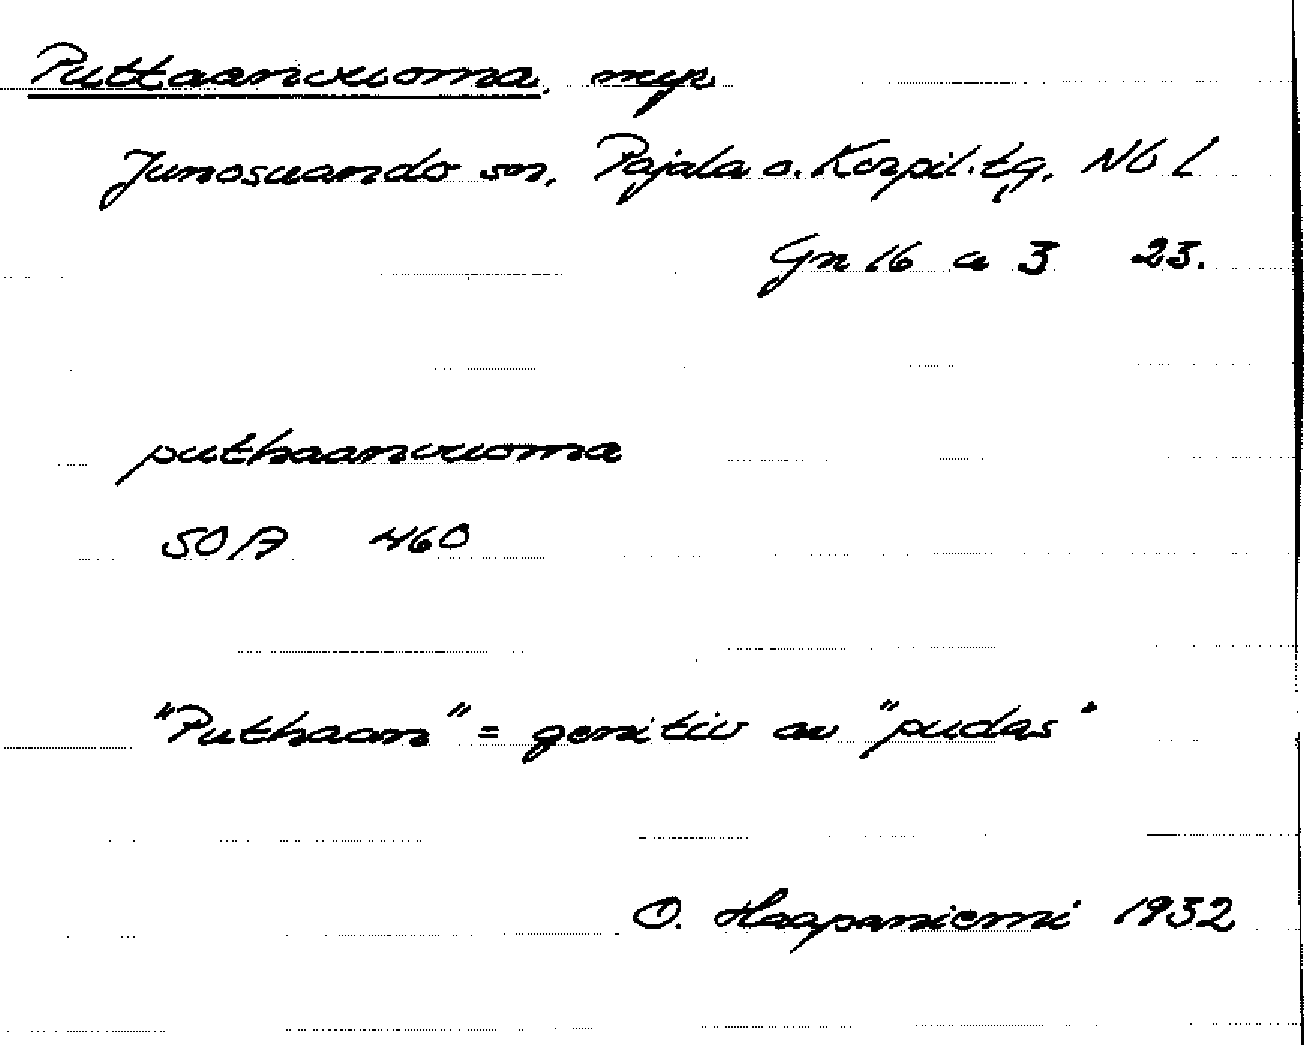 Puttaanvuoma, myr
Junosuando sn, Pajala o. Korpil. tg, Nb L
Gn 16 a 3 23.
puthaanvuoma
50/A 460
"Puthaan" = genitiv av "pudas"
O. Haapaniemi 1932